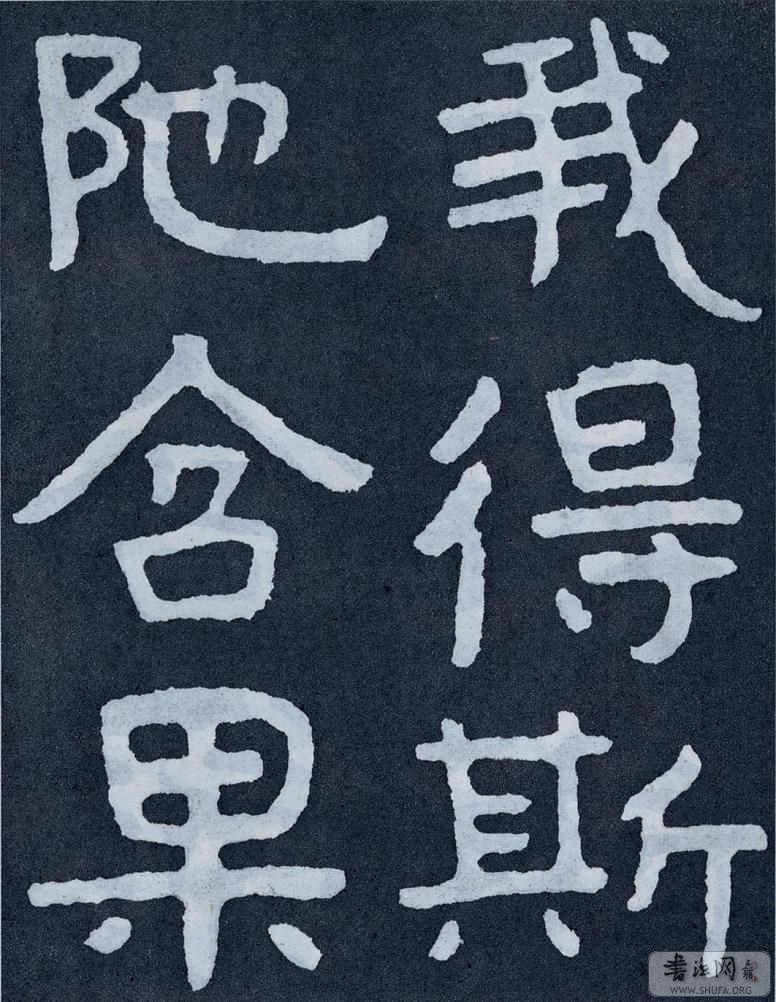 我得斯
阤含果
书法网
WWW.SHUFA.ORG